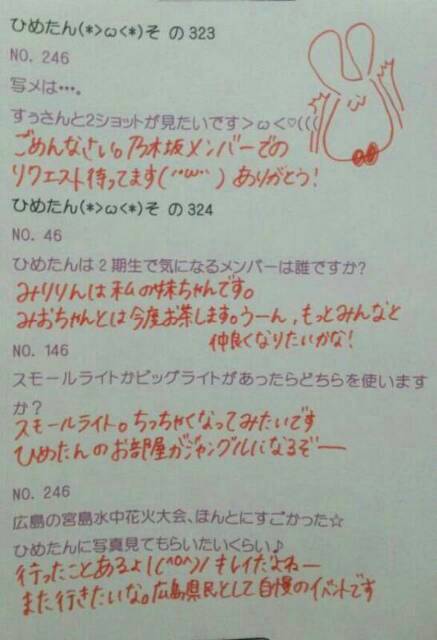 ひめたん(*>ω<*)その323
NO. 246
写メは…。
すぅさんと2ショットが見たいです>ω<♡(((
ごめんなさい。乃木坂メンバーでの
リクエスト待ってます(¨ω¨)ありがとう!
ひめたん(*>ω<*)その324
NO. 46
ひめたんは2期生で気になるメンバーは誰ですか?
みりりんは私の妹ちゃんです。
みおちゃんとは今度お茶します。うーん、もっとみんなと
仲良くなりたいかな!
NO. 146
スモールライトかビッグライトがあったらどちらを使います
か?
スモールライト。ちっちゃくなってみたいです
ひめたんのお部屋がジャングルになるぞー
NO. 246
広島の宮島水中花火大会、ほんとにすごかった☆
ひめたんに写真見てもらいたいくらい♪
行ったことあるよ!(^o^)/キレイだよねー
また行きたいな。広島県民として自慢のイベントです